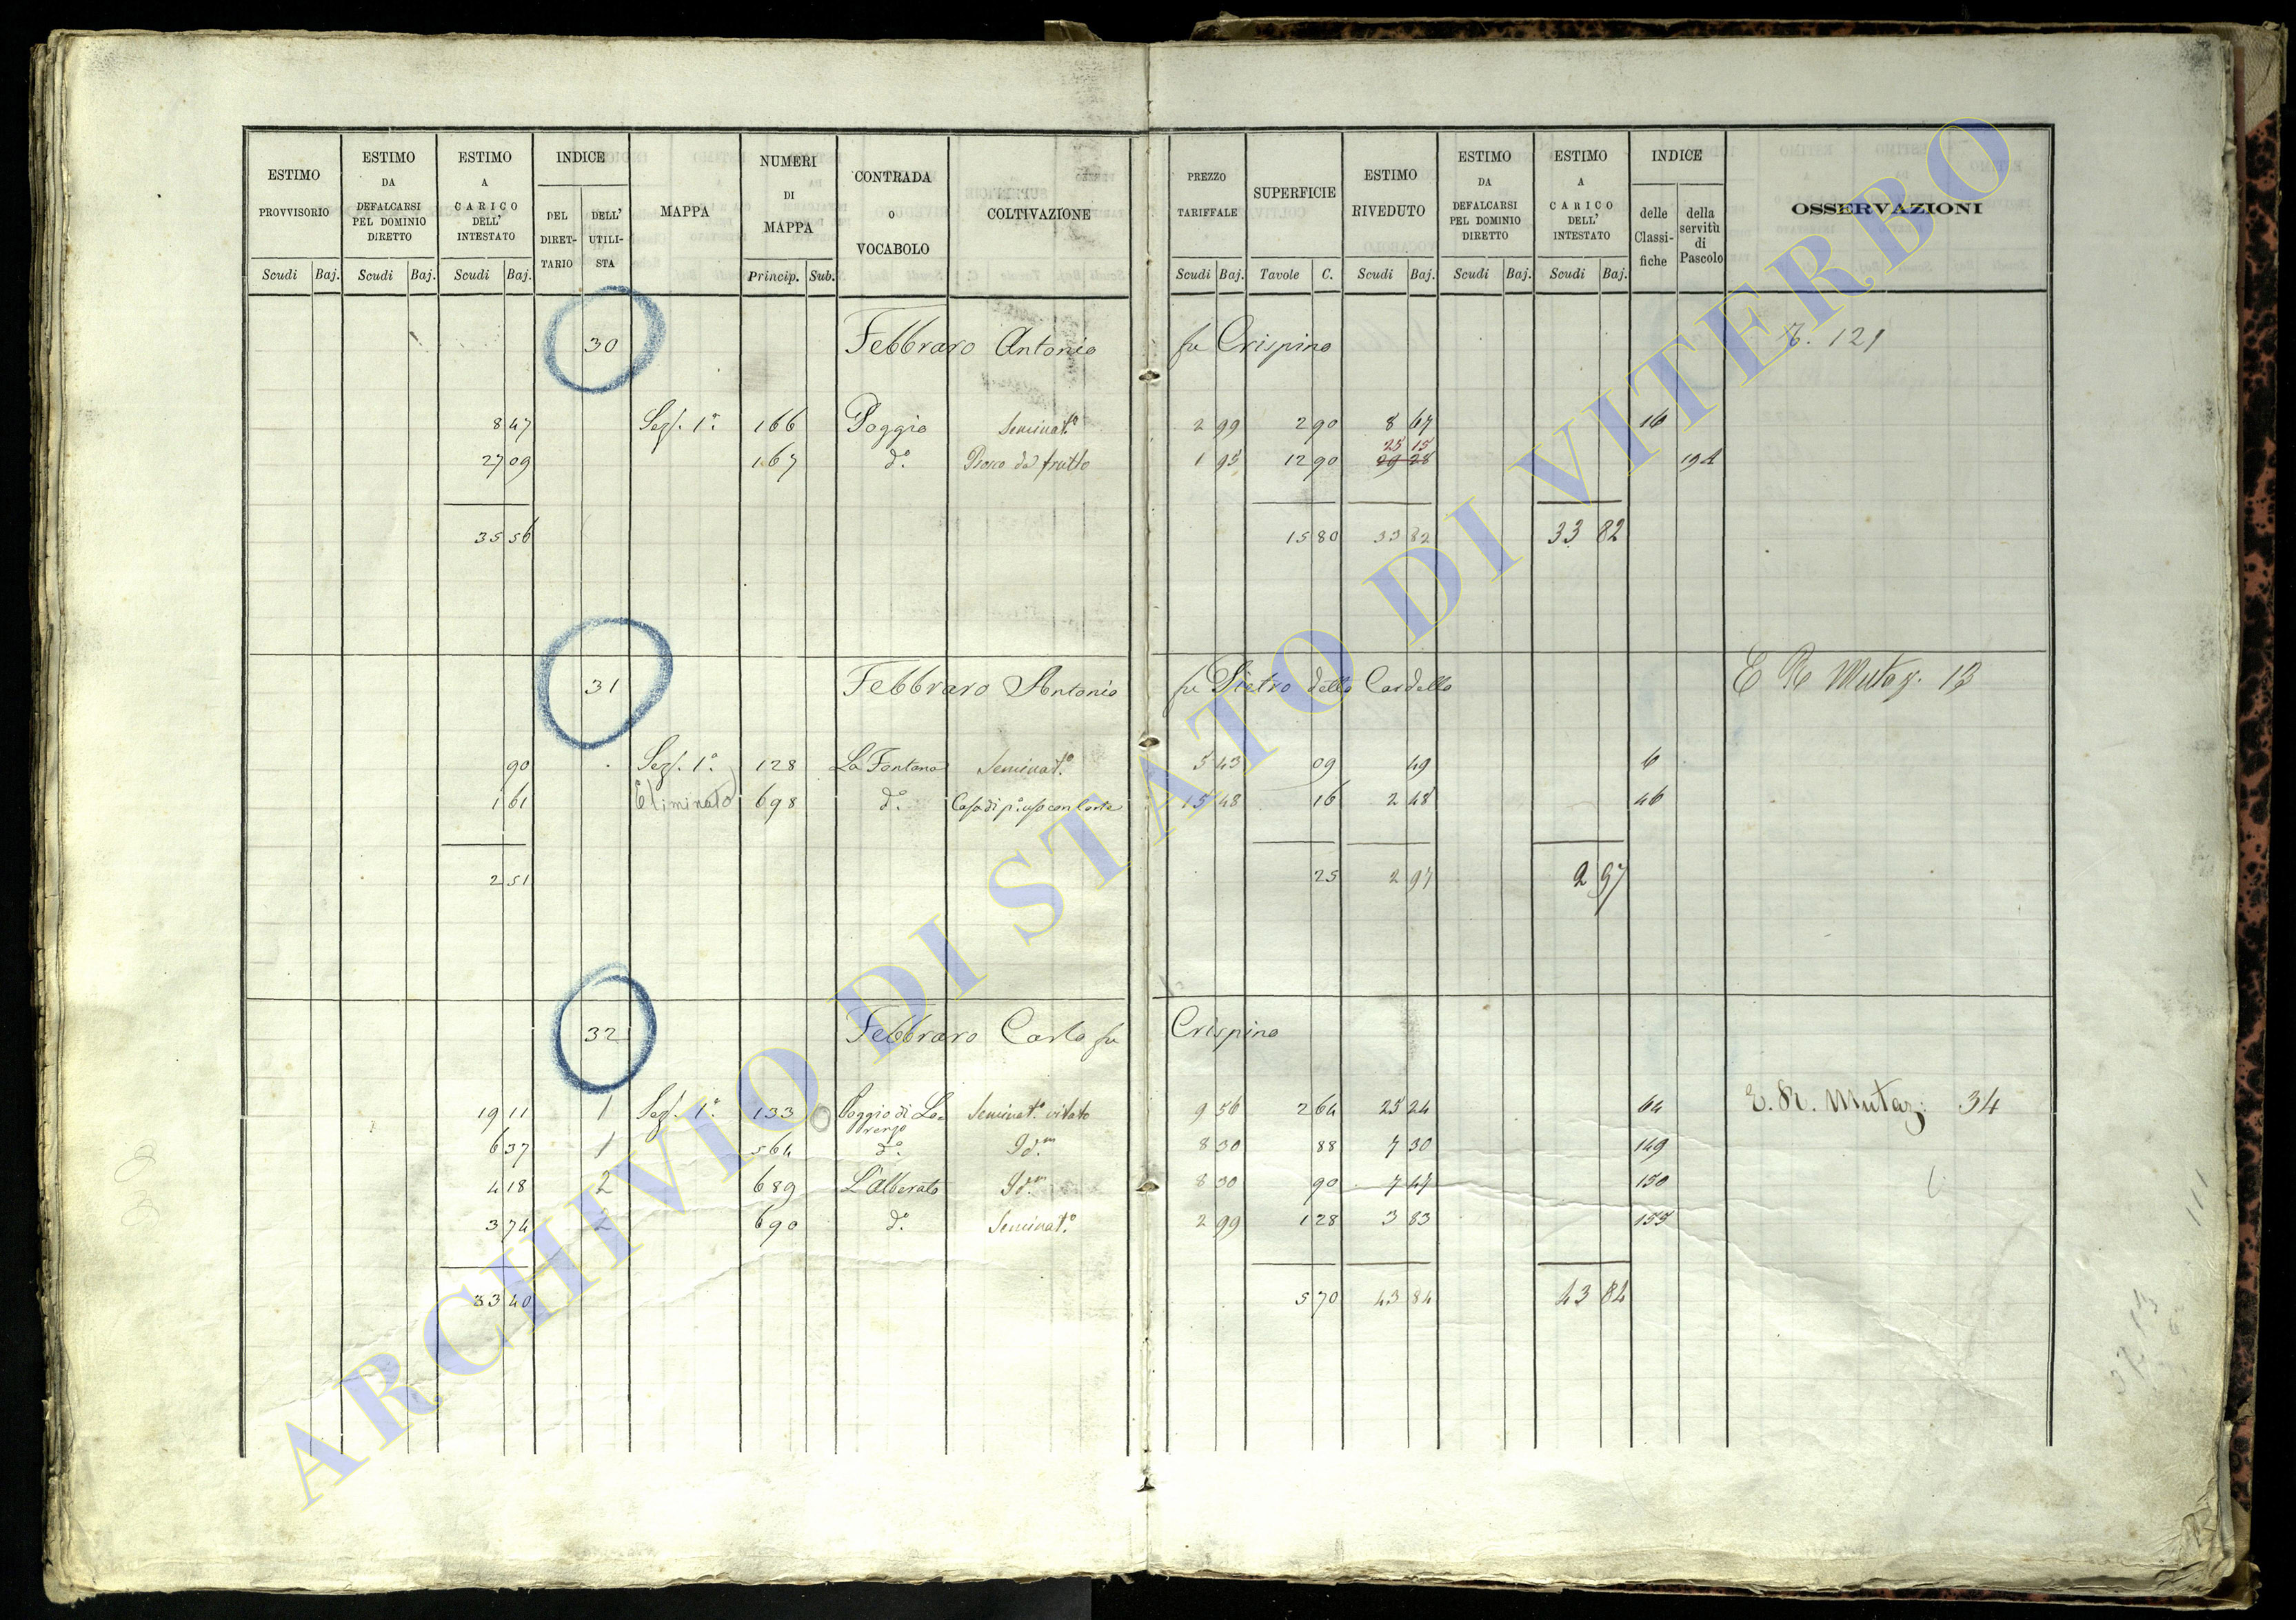 ESTIMO PROVVISORIO Scudi Baj.
ESTIMO DA DEFALCARSI PEL DOMINIO DIRETTO Scudi Baj.
ESTIMO A CARICO DELL' INTESTATO Scudi Baj.
INDICE DEL DIRET-TARIO DELL' UTILI-STA
MAPPA
NUMERI DI MAPPA Princip. Sub.
CONTRADA O VOCABOLO
COLTIVAZIONE
PREZZO TARIFFALE Scudi Baj.
SUPERFICIE Tavole C.
ESTIMO RIVEDUTO Scudi Baj.
ESTIMO DA DEFALCARSI PEL DOMINIO DIRETTO Scudi Baj.
ESTIMO A CARICO DELL' INTESTATO Scudi Baj.
INDICE delle Classi-fiche della servitù di Pascolo
OSSERVAZIONI
30 Febbraro Antonio fu Crispino 121
8 47 Sez. 1a. 166 Poggio Seminat.o 2 99 2 90 8 67 16
25 15
27 09 167 do. Bosco da frutto 1 95 12 90 29 28 194
35 56 15 80 33 82 33 82
31 Febbraro Antonio fu Pietro detto Cardello E R Mutaz. 13
90 Sez. 1a. 128 La Fontana Seminat.o 5 43 09 49 6
1 61 Eliminato 698 do. Casa di po. uso con Corte 15 48 16 2 48 46
2 51 25 2 97 2 97
32 Febbraro Carlo fu Crispino
19 11 1 Sez. 1a. 133 Poggio di Lo= Seminat.o vitato 9 56 2 64 25 24 64 E. R. Mutaz: 34
renzo
6 37 1 564 do. Idm. 8 30 88 7 30 149
4 18 2 689 L'Alberato Idm. 8 30 90 7 47 150
3 74 2 690 do. Seminat.o 2 99 1 28 3 83 155
33 40 5 70 43 84 43 84
111
ARCHIVIO DI STATO DI VITERBO